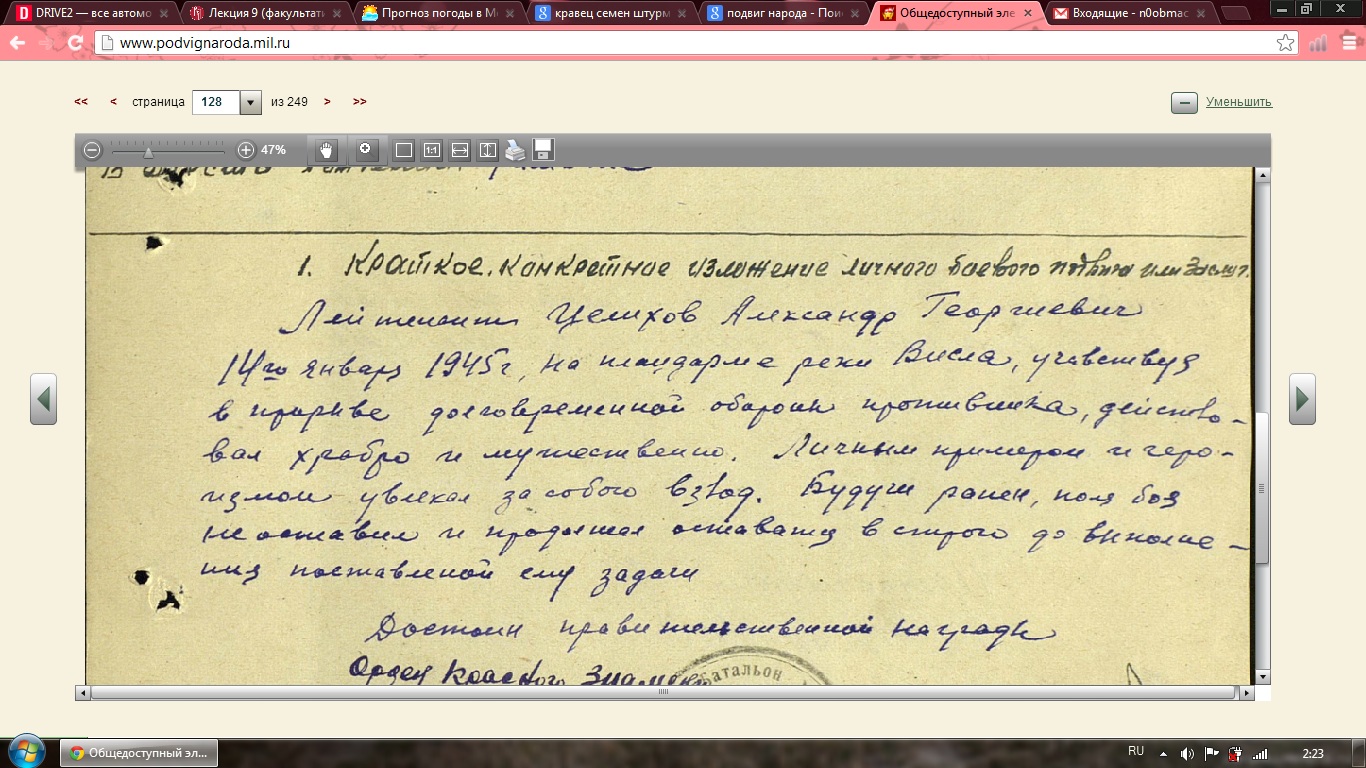 DRIVE2 — все автомо
Лекция 9 (факультати
Прогноз погоды в Мо
кравец семен штурм
подвиг народа - Пои
Общедоступный эле
Входящие - n0obmac
www.podvignaroda.mil.ru
<< < страница 128 из 249 > >>
Уменьшить
47%
1:1
1. Краткое, конкретное изложение личного боевого подвига или заслуг.
Лейтенант Целихов Александр Георгиевич
14го январ 1945г, на плацдарме реки Висла, участвуя
в прорыве долговременной обороны противника, действо-
вал храбро и мужественно. Личным примером и геро-
измом увлекал за собою взвод. Будучи ранен, поля боя
не оставил и продолжал оставатц в строю до выполне-
ния поставленой ему задачи
Достоин правительственной награды
Орден Красного Знамени
батальон
Общедоступный эл...
RU
2:23